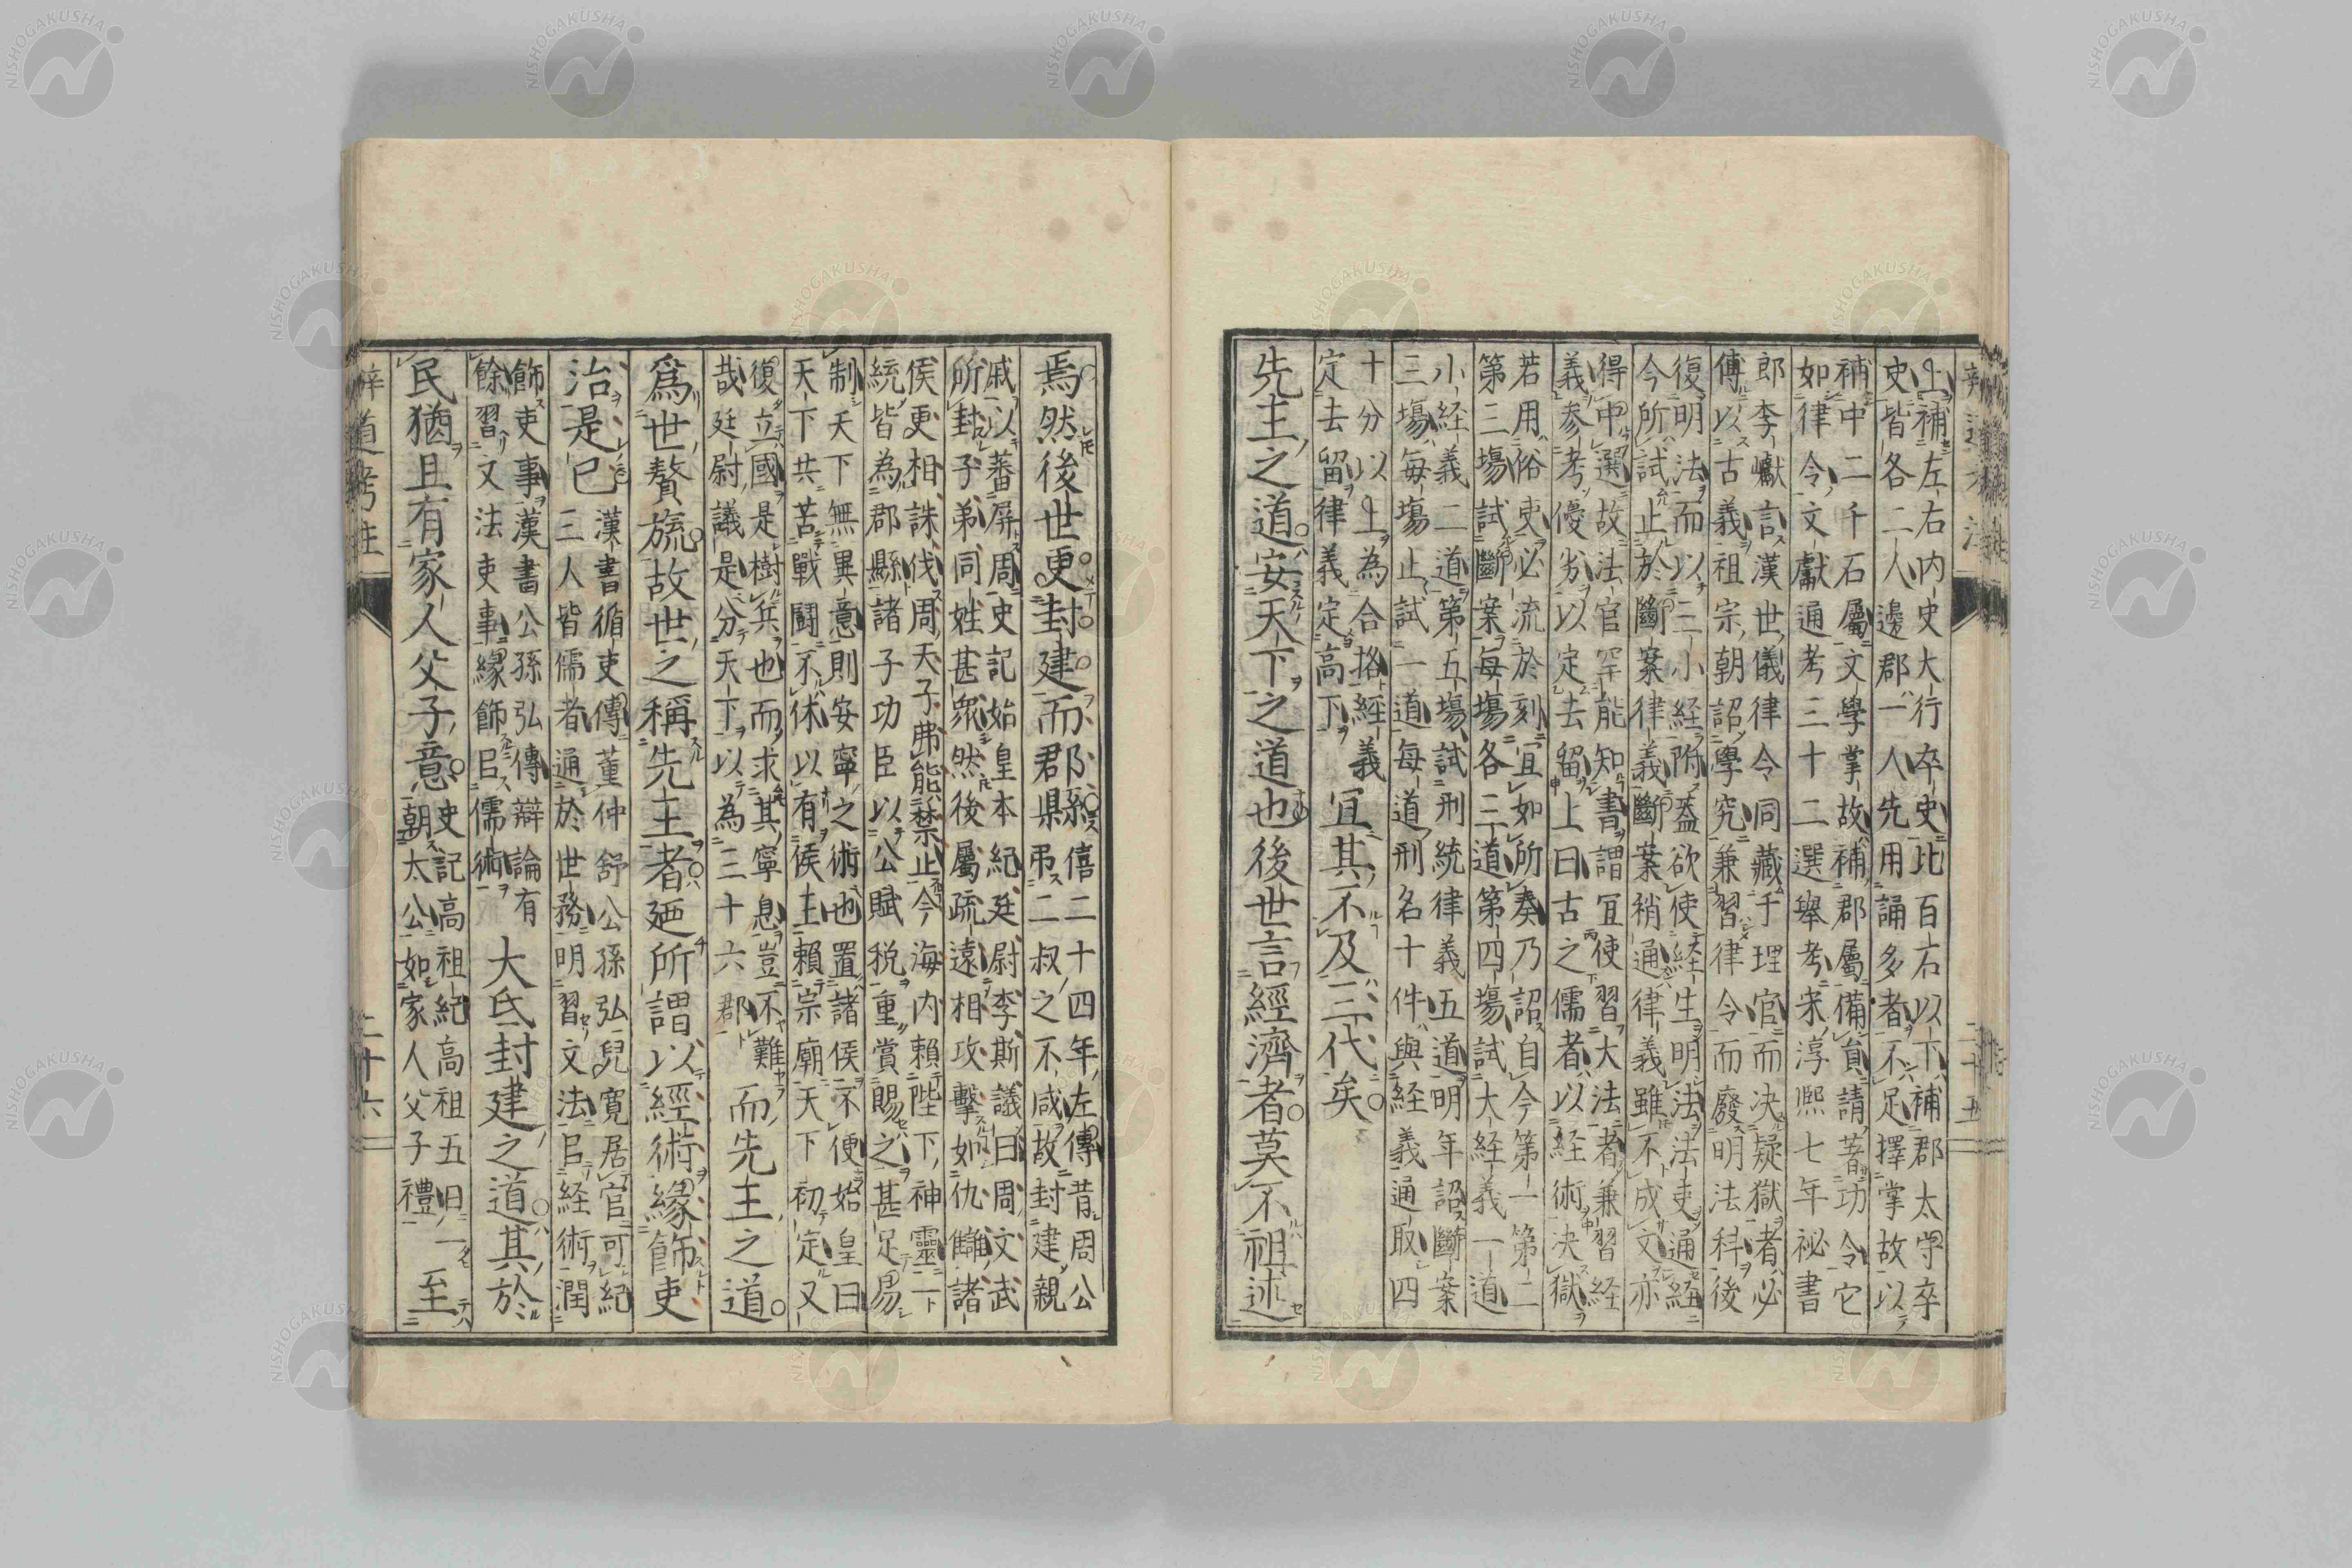 上補左右内史大行卒史比百石以下補郡太守卒
史皆各二人邊郡一人先用誦多者不足擇掌故以
補中二千石屬文學掌故補郡屬備員請著功令它
如律令文獻通考三十二選舉考宋淳熙七年祕書
郎李巘言漢世儀律令同藏于理官而決疑獄者必
傳以古義祖宗朝詔學究兼習律令而廢明法科後
復明法而以三小経附盖欲使経生明法法吏通経
今所試止於斷案律義斷案稍通律義雖不成文亦
得中選故法官罕能知書謂冝使習大法者兼習経
義参考優劣以定去留上曰古之儒者以経術決獄
若用俗吏必流於刻冝如所奏乃詔自今第一第二
第三場試斷案每場各三道第四場試大経義一道
小経義二道第五場試刑統律義五道明年詔斷案
三場每場止試一道每道刑名十件與経義通取四
十分以上為合挌経義
定去留律義定高下
冝其不及三代矣
先王之道安天下之道也後世言經濟者莫不祖述
焉然後世更封建而郡縣
僖二十四年左傳昔周公
弔二叔之不咸故封建親
戚以蕃屏周史記始皇本紀廷尉李斯議曰周文武
所封子弟同姓甚衆然後屬疏遠相攻擊如仇讎諸
侯更相誅伐周天子弗能禁止今海内賴陛下神靈一
統皆為郡縣諸子功臣以公賦税重賞賜之甚足易
制天下無異意則安寧之術也置諸侯不便始皇曰
天下共苦戰鬪不休以有侯王賴宗廟天下初定又
復立國是樹兵也而求其寧息豈不難
哉廷尉議是分天下以為三十六郡
而先王之道
爲世贅旒故世之稱先王者廼所謂以經術緣飾吏
治是已
漢書循吏傳董仲舒公孫弘兒寛居官可紀
三人皆儒者通於世務明習文法㠯経術潤
飾吏事漢書公孫弘傳辯論有
餘習文法吏事緣飾㠯儒術
大氏封建之道其於
民猶且有家人父子意
史記高祖紀高祖五日一
朝太公如家人父子禮
至
辨道考注
二十六
二十五